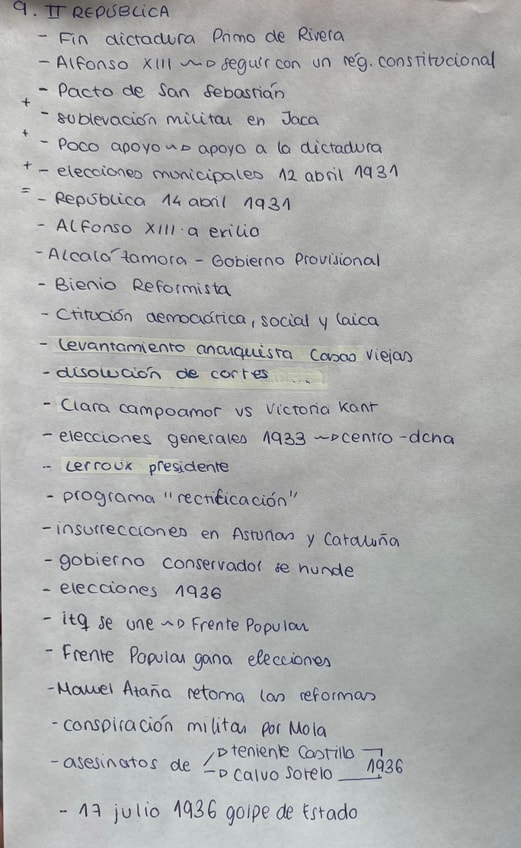 9. II REPÚBLICA
- Fin dictadura Primo de Rivera
- Alfonso XIII ~> seguir con un rég. constitucional
- Pacto de San Sebastián
+ - sublevación militar en Jaca
+ - Poco apoyo ~> apoyo a la dictadura
+ - elecciones municipales 12 abril 1931
= - República 14 abril 1931
- Alfonso XIII a exilio
- Alcalá Zamora - Gobierno Provisional
- Bienio Reformista
- Ctitución democrática, social y laica
- Levantamiento anarquista Casas Viejas
- disolución de cortes ....
- Clara campoamor vs Victoria Kant
- elecciones generales 1933 ~> centro-dcha
- Lerroux presidente
- programa "rectificación"
- insurrecciones en Asturias y Cataluña
- gobierno conservador se hunde
- elecciones 1936
- itq se une ~> Frente Popular
- Frente Popular gana elecciones
- Manuel Azaña retoma las reformas
- conspiración militar por Mola
- asesinatos de -> teniente Castillo
-> Calvo Sotelo 1936
- 17 julio 1936 golpe de Estado